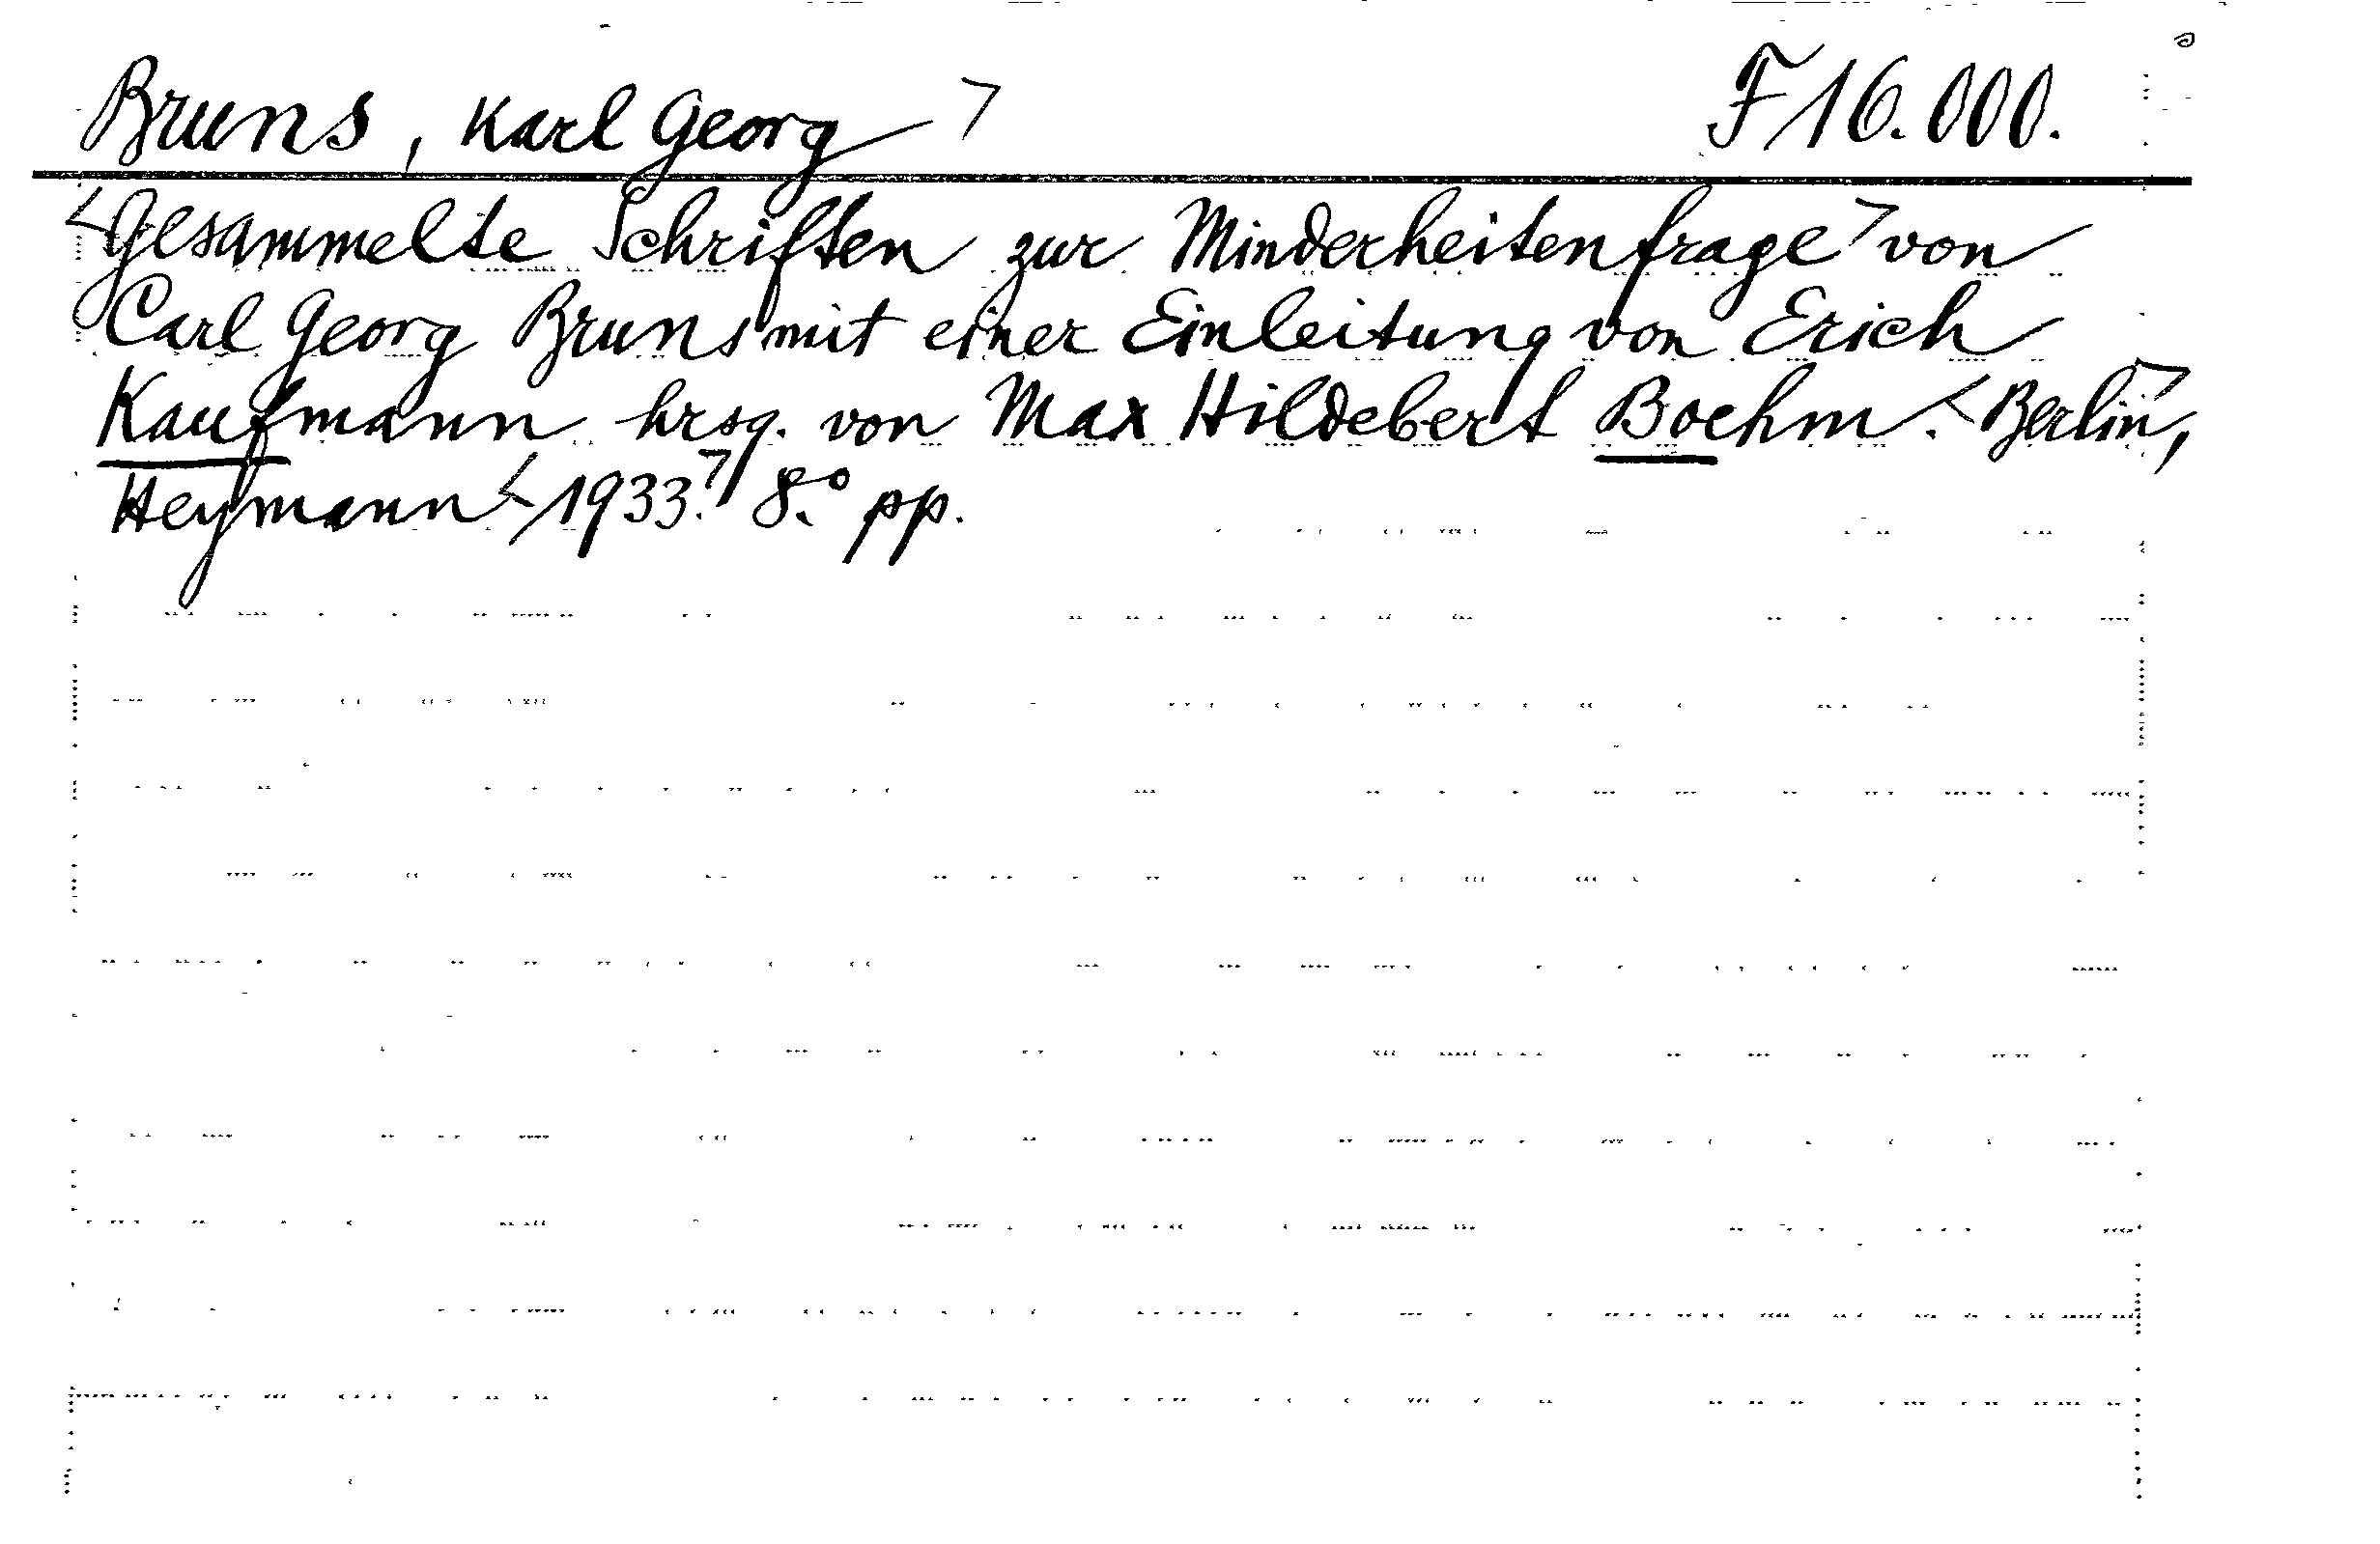 Bruns, Karl Georg > F 16.000.
<Gesammelte Schriften zur Minderheitenfrage> von
Carl Georg Bruns mit einer Einleitung von Erich
Kaufmann hrsg. von Max Hildebert Boehm. <Berlin>,
Heymann <1933.> 8.° pp.